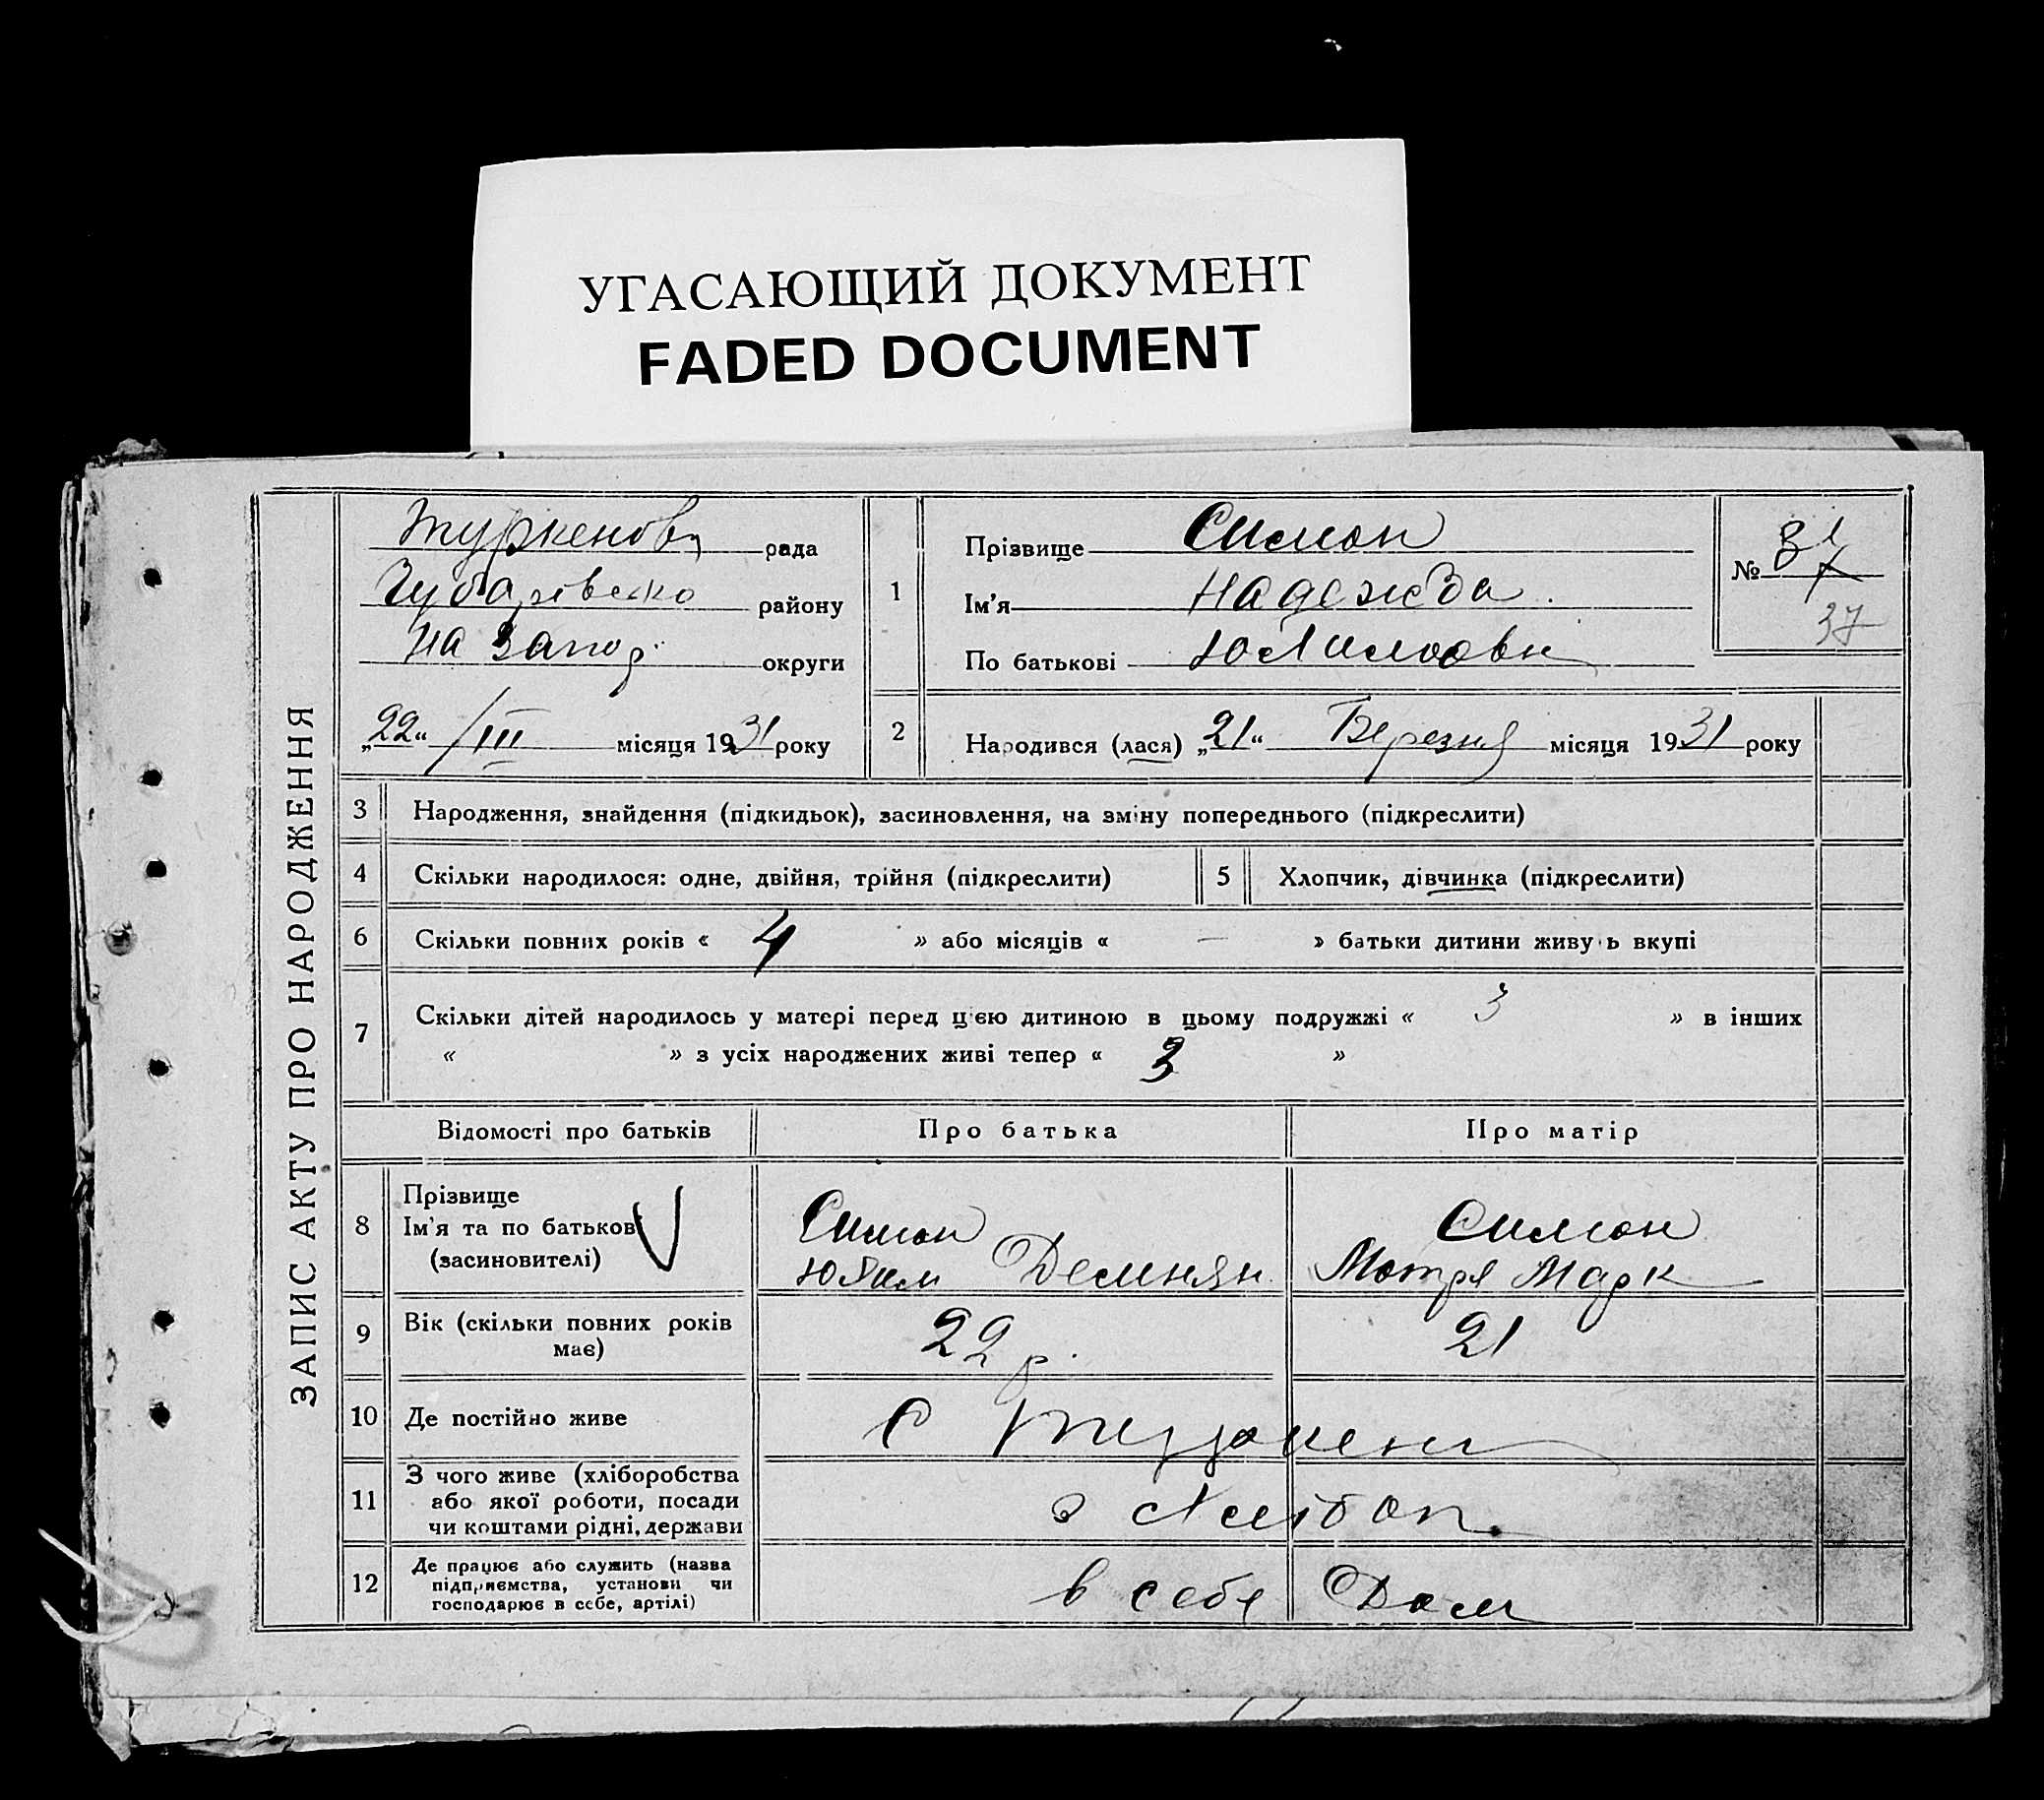 УГАСАЮЩИЙ ДОКУМЕНТ
FADED DOCUMENT
ЗАПИС АКТУ ПРО НАРОДЖЕННЯ
рада
району
на Запор. округи
„22“ /III місяця 1931 року
1
Прізвище Симон
Ім'я Надежда.
По батькові
№ 31
37
2
Народився (лася) „21“ Березня місяця 1931 року
3 Народження, знайдення (підкидьок), засиновлення, на зміну попереднього (підкреслити)
4 Скільки народилося: одне, двійня, трійня (підкреслити)
5 Хлопчик, дівчинка (підкреслити)
6 Скільки повних років « 4 » або місяців « — » батьки дитини живуть вкупі
7 Скільки дітей народилось у матері перед цією дитиною в цьому подружжі « 3 » в інших
« » з усіх народжених живі тепер « 3 »
Відомості про батьків
Про батька
Про матір
8 Прізвище
Ім'я та по батькові
(засиновителі)
Симон
Юхим Демнян.
Симон
Мотря Марк
9 Вік (скільки повних років має)
22 р.
21
10 Де постійно живе
с
11 З чого живе (хліборобства
або якої роботи, посади
чи коштами рідні, держави
з хлібоп.
12 Де працює або служить (назва
підприємства, установи чи
господарює в себе, артілі)
в себе Дом